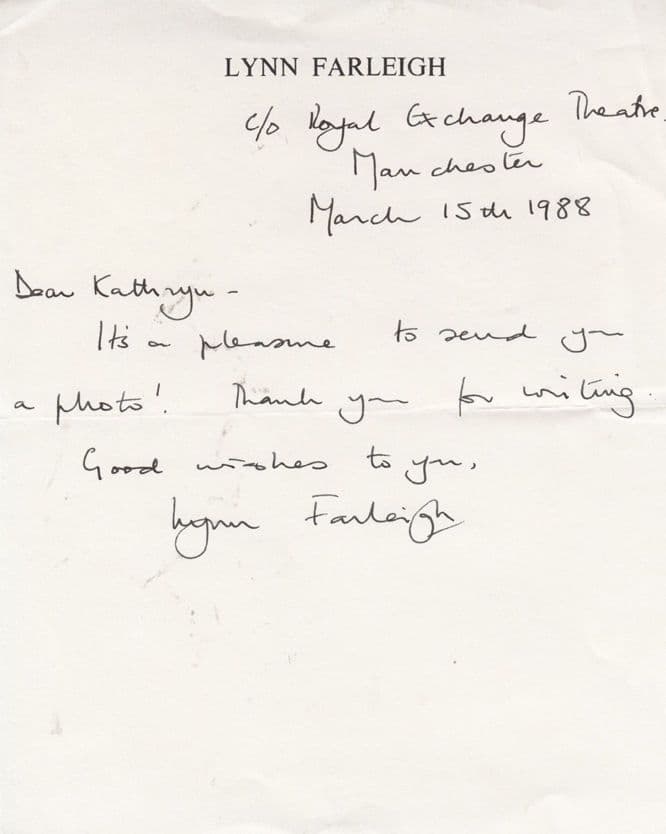 LYNN FARLEIGH
c/o Royal Exchange Theatre.
Manchester
March 15th 1988
Dear Kathryn -
It's a pleasure to send you
a photo! Thank you for writing.
Good wishes to you,
Lynn Farleigh